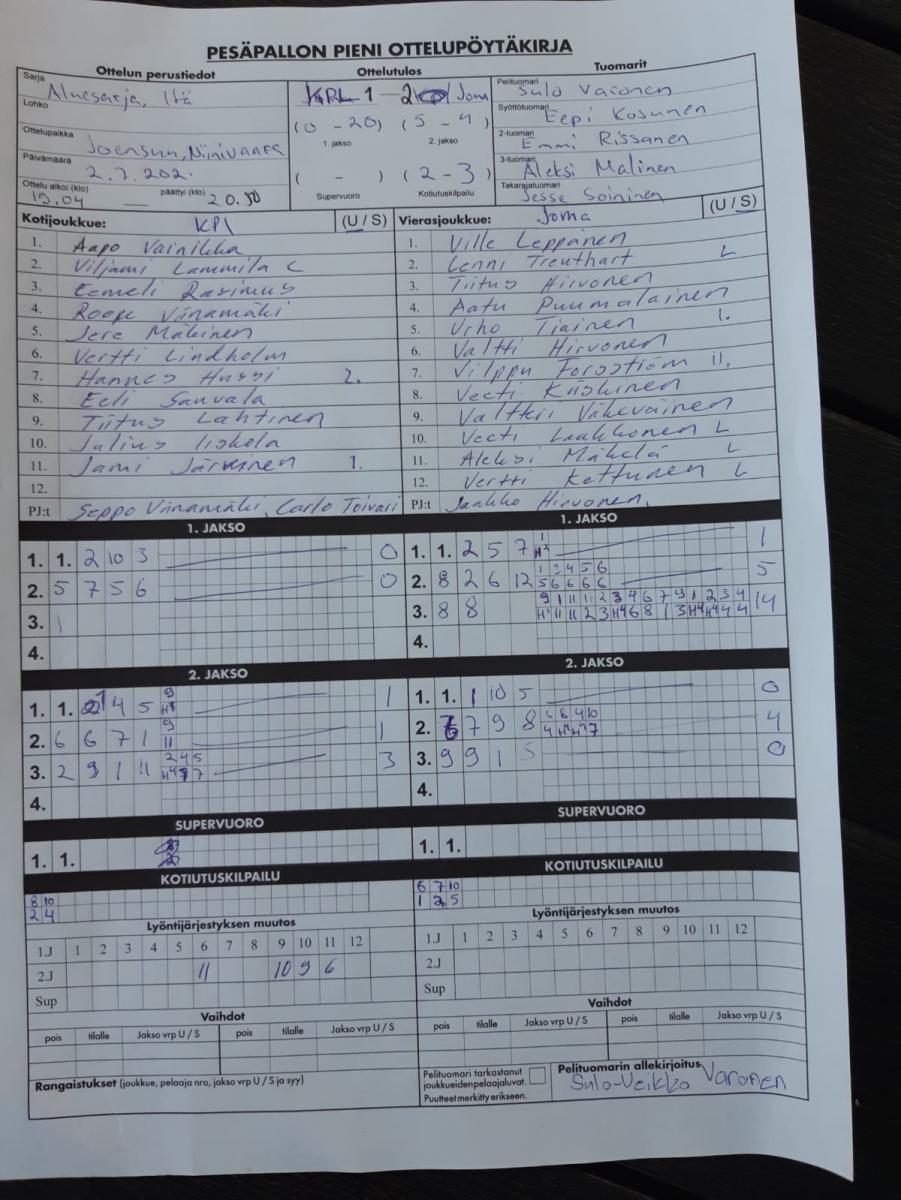 PESÄPALLON PIENI OTTELUPÖYTÄKIRJA
Ottelun perustiedot Ottelutulos Tuomarit
Sarja Aluesarja, Itä
KPL 1 - 2 Joma
Pelituomari Sulo Varonen
Lohko
(0 - 20) (5 - 4)
1. jakso 2. jakso
Syöttötuomari Eepi Kosunen
Ottelupaikka Joensuu, Niinivaara
2-tuomari Emmi Rissanen
Päivämäärä 2.7.202.
( - ) (2 - 3)
Supervuoro Kotiutuskilpailu
3-tuomari Aleksi Malinen
Ottelu alkoi (klo) 19.04 päättyi (klo) 20.50
Takarajatuomari Jesse Soininen
Kotijoukkue: KPL (U / S) Vierasjoukkue: Joma (U / S)
1. Aapo Vainikka 1. Ville Leppänen
2. Viljami Lammila C 2. Lenni Treuthart L
3. Eemeli Rasimus 3. Tiitus Hirvonen
4. Roope Viinamäki 4. Aatu Puumalainen
5. Jere Mäkinen 5. Urho Tiainen 1.
6. Vertti Lindholm 6. Valtti Hirvonen
7. Hannes Hussi 2. 7. Vilppu Forsström II.
8. Eeli Sauvala 8. Veeti Kiiskinen
9. Tiitus Lahtinen 9. Valtteri Väkeväinen
10. Julius Iiskola 10. Veeti Laakkonen L
11. Jami Järvinen 1. 11. Aleksi Mäkelä L
12. 12. Vertti Kettunen L
PJ:t Seppo Viinamäki, Carlo Toivari PJ:t Jaakko Hirvonen
1. JAKSO 1. JAKSO
1. 1. 2 10 3 0 1. 1. 2 5 7 1
2. 5 7 5 6 0 2. 8 2 6 12 1 2 4 5 6 5
5 6 6 6 6
3. 1 3. 8 8 9 1 11 1 2 3 4 6 7 9 1 2 3 4 14
4. 4.
2. JAKSO 2. JAKSO
1. 1. 4 5 9 1 1. 1. 1 10 5 0
2. 6 6 7 1 9 1 2. 7 9 8 6 8 4 10 4
11
3. 2 9 1 11 2 4 5 3 3. 9 9 1 5 0
4. 4.
SUPERVUORO SUPERVUORO
1. 1. 1. 1.
KOTIUTUSKILPAILU KOTIUTUSKILPAILU
8 10 6 7 10
2 4 1 2 5
Lyöntijärjestyksen muutos Lyöntijärjestyksen muutos
1.J 1 2 3 4 5 6 7 8 9 10 11 12 1.J 1 2 3 4 5 6 7 8 9 10 11 12
2.J 11 10 9 6 2.J
Sup Sup
Vaihdot Vaihdot
pois tilalle Jakso vrp U / S pois tilalle Jakso vrp U / S pois tilalle Jakso vrp U / S pois tilalle Jakso vrp U / S
Rangaistukset (joukkue, pelaaja nro, jakso vrp U / S ja syy)
Pelituomari tarkastanut
joukkueiden pelaajaluvat.
Puutteet merkitty erikseen.
Pelituomarin allekirjoitus
Sulo-Veikko Varonen